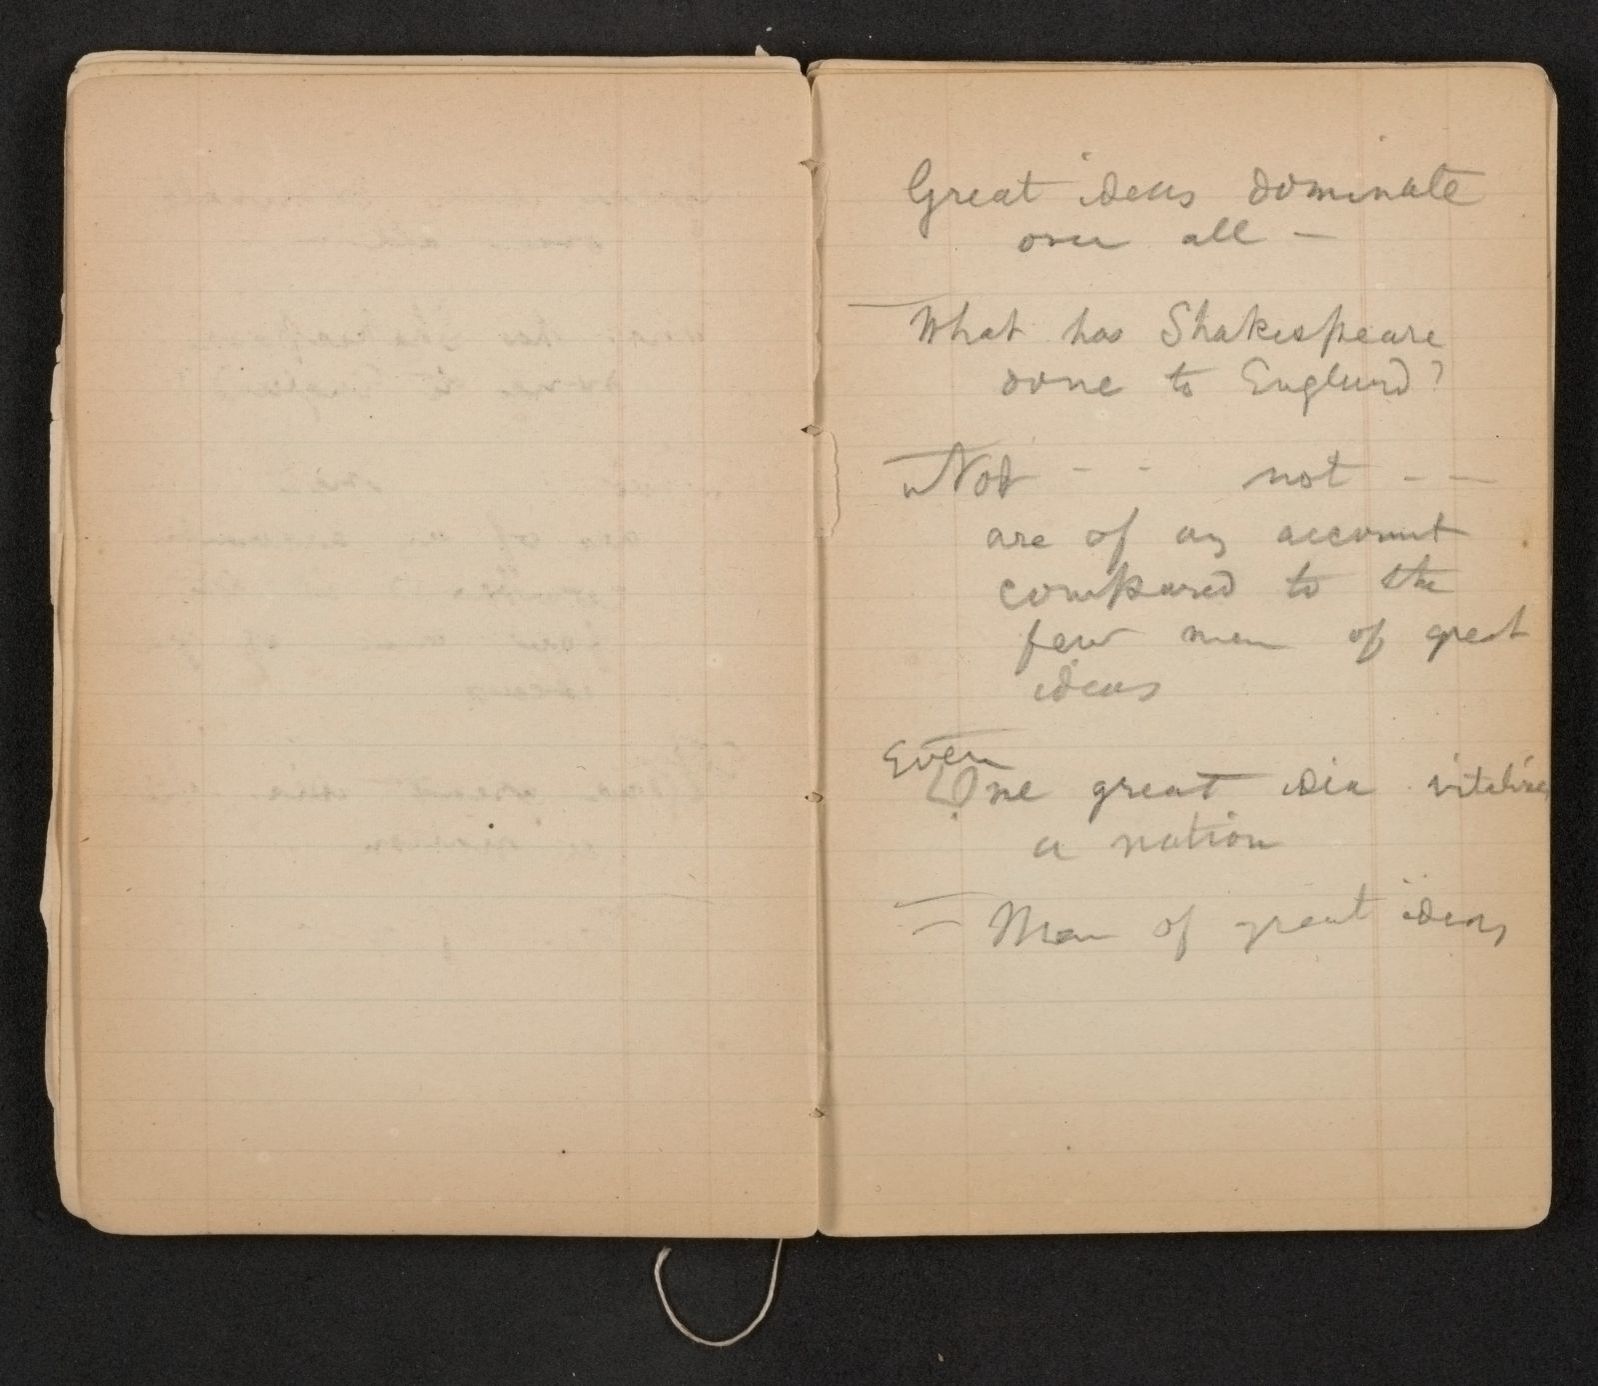 Great ideas dominate
over all —
What has Shakespeare
done to England?
Not - - not - —
are of any account
compared to the
few men of great
ideas
Even
One great idea vitalizes
a nation
Men of great ideas